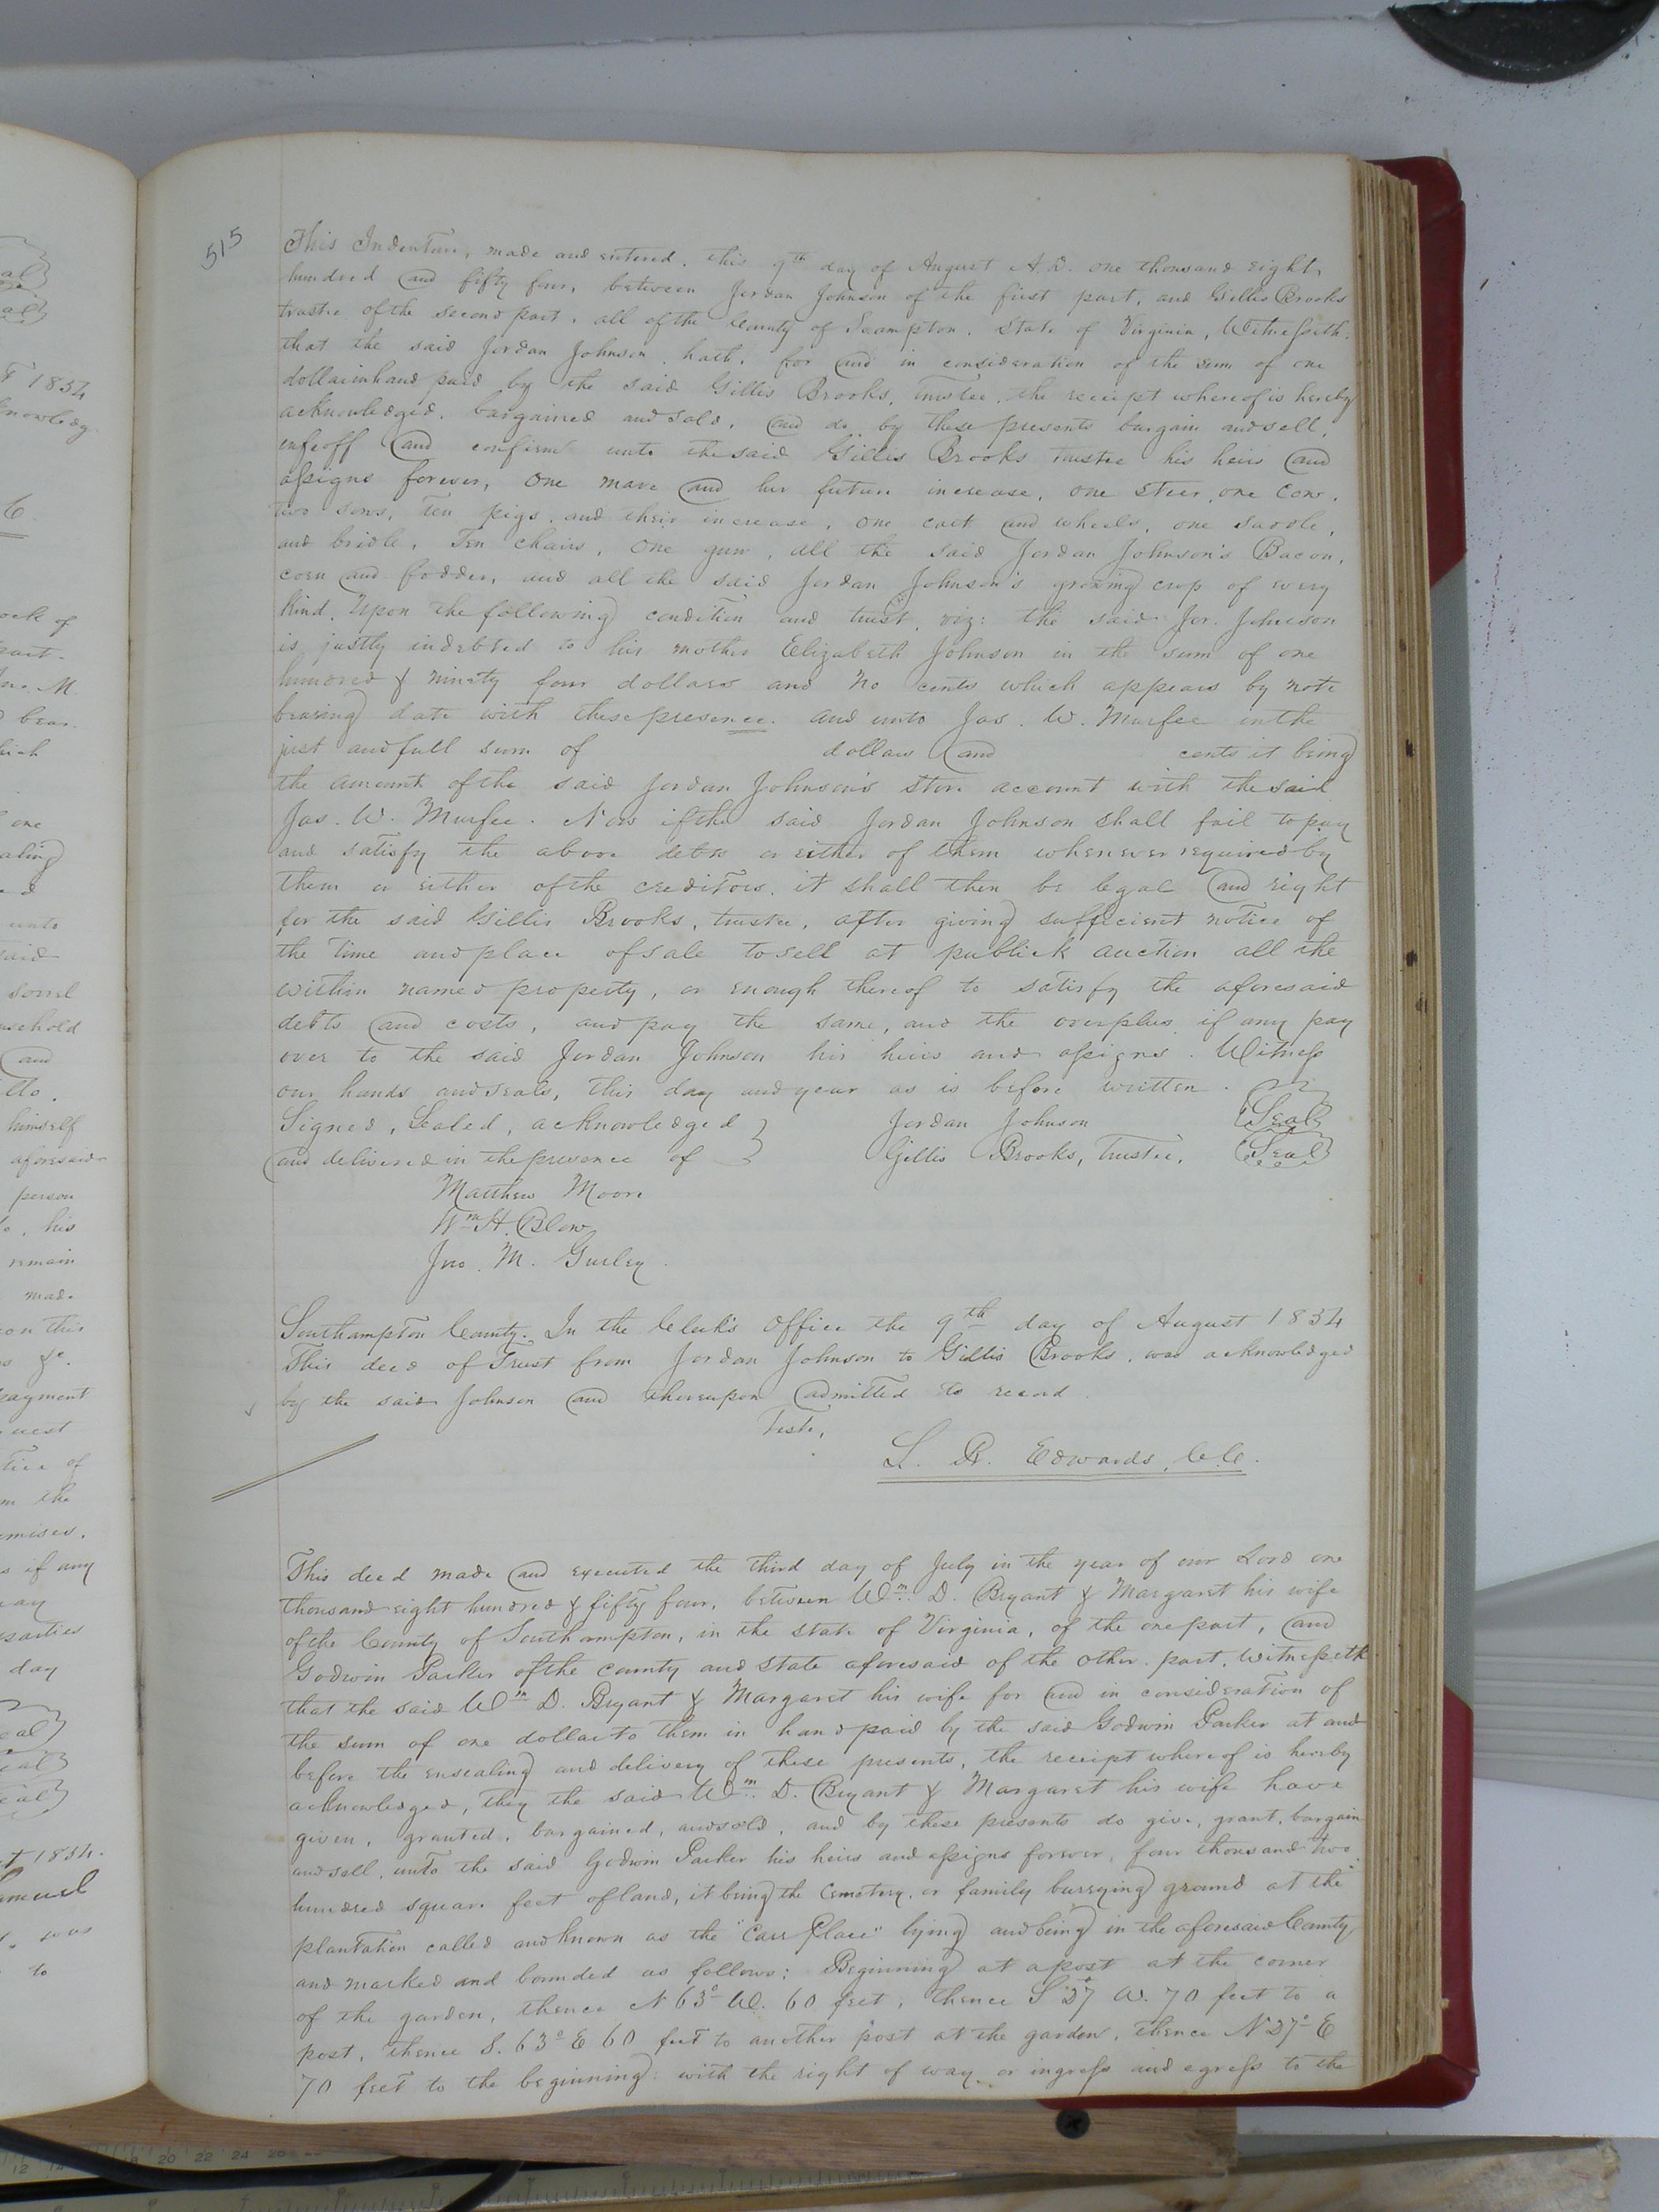 515
This Indenture, made and entered, this 9th day of August A.D. one thousand eight
hundred and fifty four, between Jordan Johnson of the first part, and Gillis Brooks
trustee of the second part, all of the County of Sampton, State of Virginia, Witnesseth,
that the said Jordan Johnson, hath, for and in consideration of the sum of one
dollar in hand paid by the said Gillis Brooks, Trustee, the receipt whereof is hereby
acknowledged, bargained and sold, and do by these presents bargain and sell,
enfeoff and confirm unto the said Gillis Brooks trustee his heirs and
assigns forever, One mare and her future increase, one steer, one cow,
two sows, Ten pigs, and their increase, one cart and wheels, one saddle,
and bridle, Ten chairs, One gun, all the said Jordan Johnson's Bacon,
corn and fodder, and all the said Jordan Johnson's growing crop of every
kind, Upon the following condition and trust, viz: the said Jor. Johnson
is justly indebted to his mother Elizabeth Johnson in the sum of one
hundred & ninety four dollars and no cents which appears by note
bearing date with these presence. and unto Jas. W. Murfee in the
just and full sum of dollars and cents it being
the amount of the said Jordan Johnson's store account with the said
Jas. W. Murfee. Now if the said Jordan Johnson shall fail to pay
and satisfy the above debts or either of them whenever required by
them or either of the creditors, it shall then be legal and right
for the said Gillis Brooks, trustee, after giving sufficient notice of
the time and place of sale to sell at publick auction all the
within named property, or enough thereof to satisfy the aforesaid
debts and costs, and pay the same, and the overplus if any pay
over to the said Jordan Johnson his heirs and assigns. Witness
our hands and seals, this day and year as is before written.
Signed, Sealed, acknowledged } Jordan Johnson {Seal}
and delivered in the presence of } Gillis Brooks, Trustee, {Seal}
Matthew Moore
Wm H. Blow
Jno. M. Gurley.
Southampton County. In the Clerk's Office the 9th day of August 1854
This deed of Trust from Jordan Johnson to Gillis Brooks, was acknowledged
by the said Johnson and thereupon admitted to record.
Teste,
L. R. Edwards, C.C.
This deed made and executed the third day of July in the year of our Lord one
thousand eight hundred & fifty four, between Wm. D. Bryant & Margaret his wife
of the County of Southampton, in the state of Virginia, of the one part, and
Godwin Parker of the county and State aforesaid of the other part, Witnesseth
that the said Wm D. Bryant & Margaret his wife for and in consideration of
the sum of one dollar to them in hand paid by the said Godwin Parker at and
before the ensealing and delivery of these presents, the receipt whereof is hereby
acknowledged, they the said Wm. D. Bryant & Margaret his wife have
given, granted, bargained, and sold, and by these presents do give, grant, bargain
and sell, unto the said Godwin Parker his heirs and assigns forever, four thousand two
hundred square feet of land, it being the Cemetery, or family burrying ground at the
plantation called and known as the "Carr Place" lying and being in the aforesaid County
and marked and bounded as follows: Beginning at a post at the corner
of the garden, thence N 63° W. 60 feet, thence S 27° W. 70 feet to a
post, thence S. 63° E 60 feet to another post at the garden, thence N 27° E
70 feet to the beginning: with the right of way or ingress and egress to the